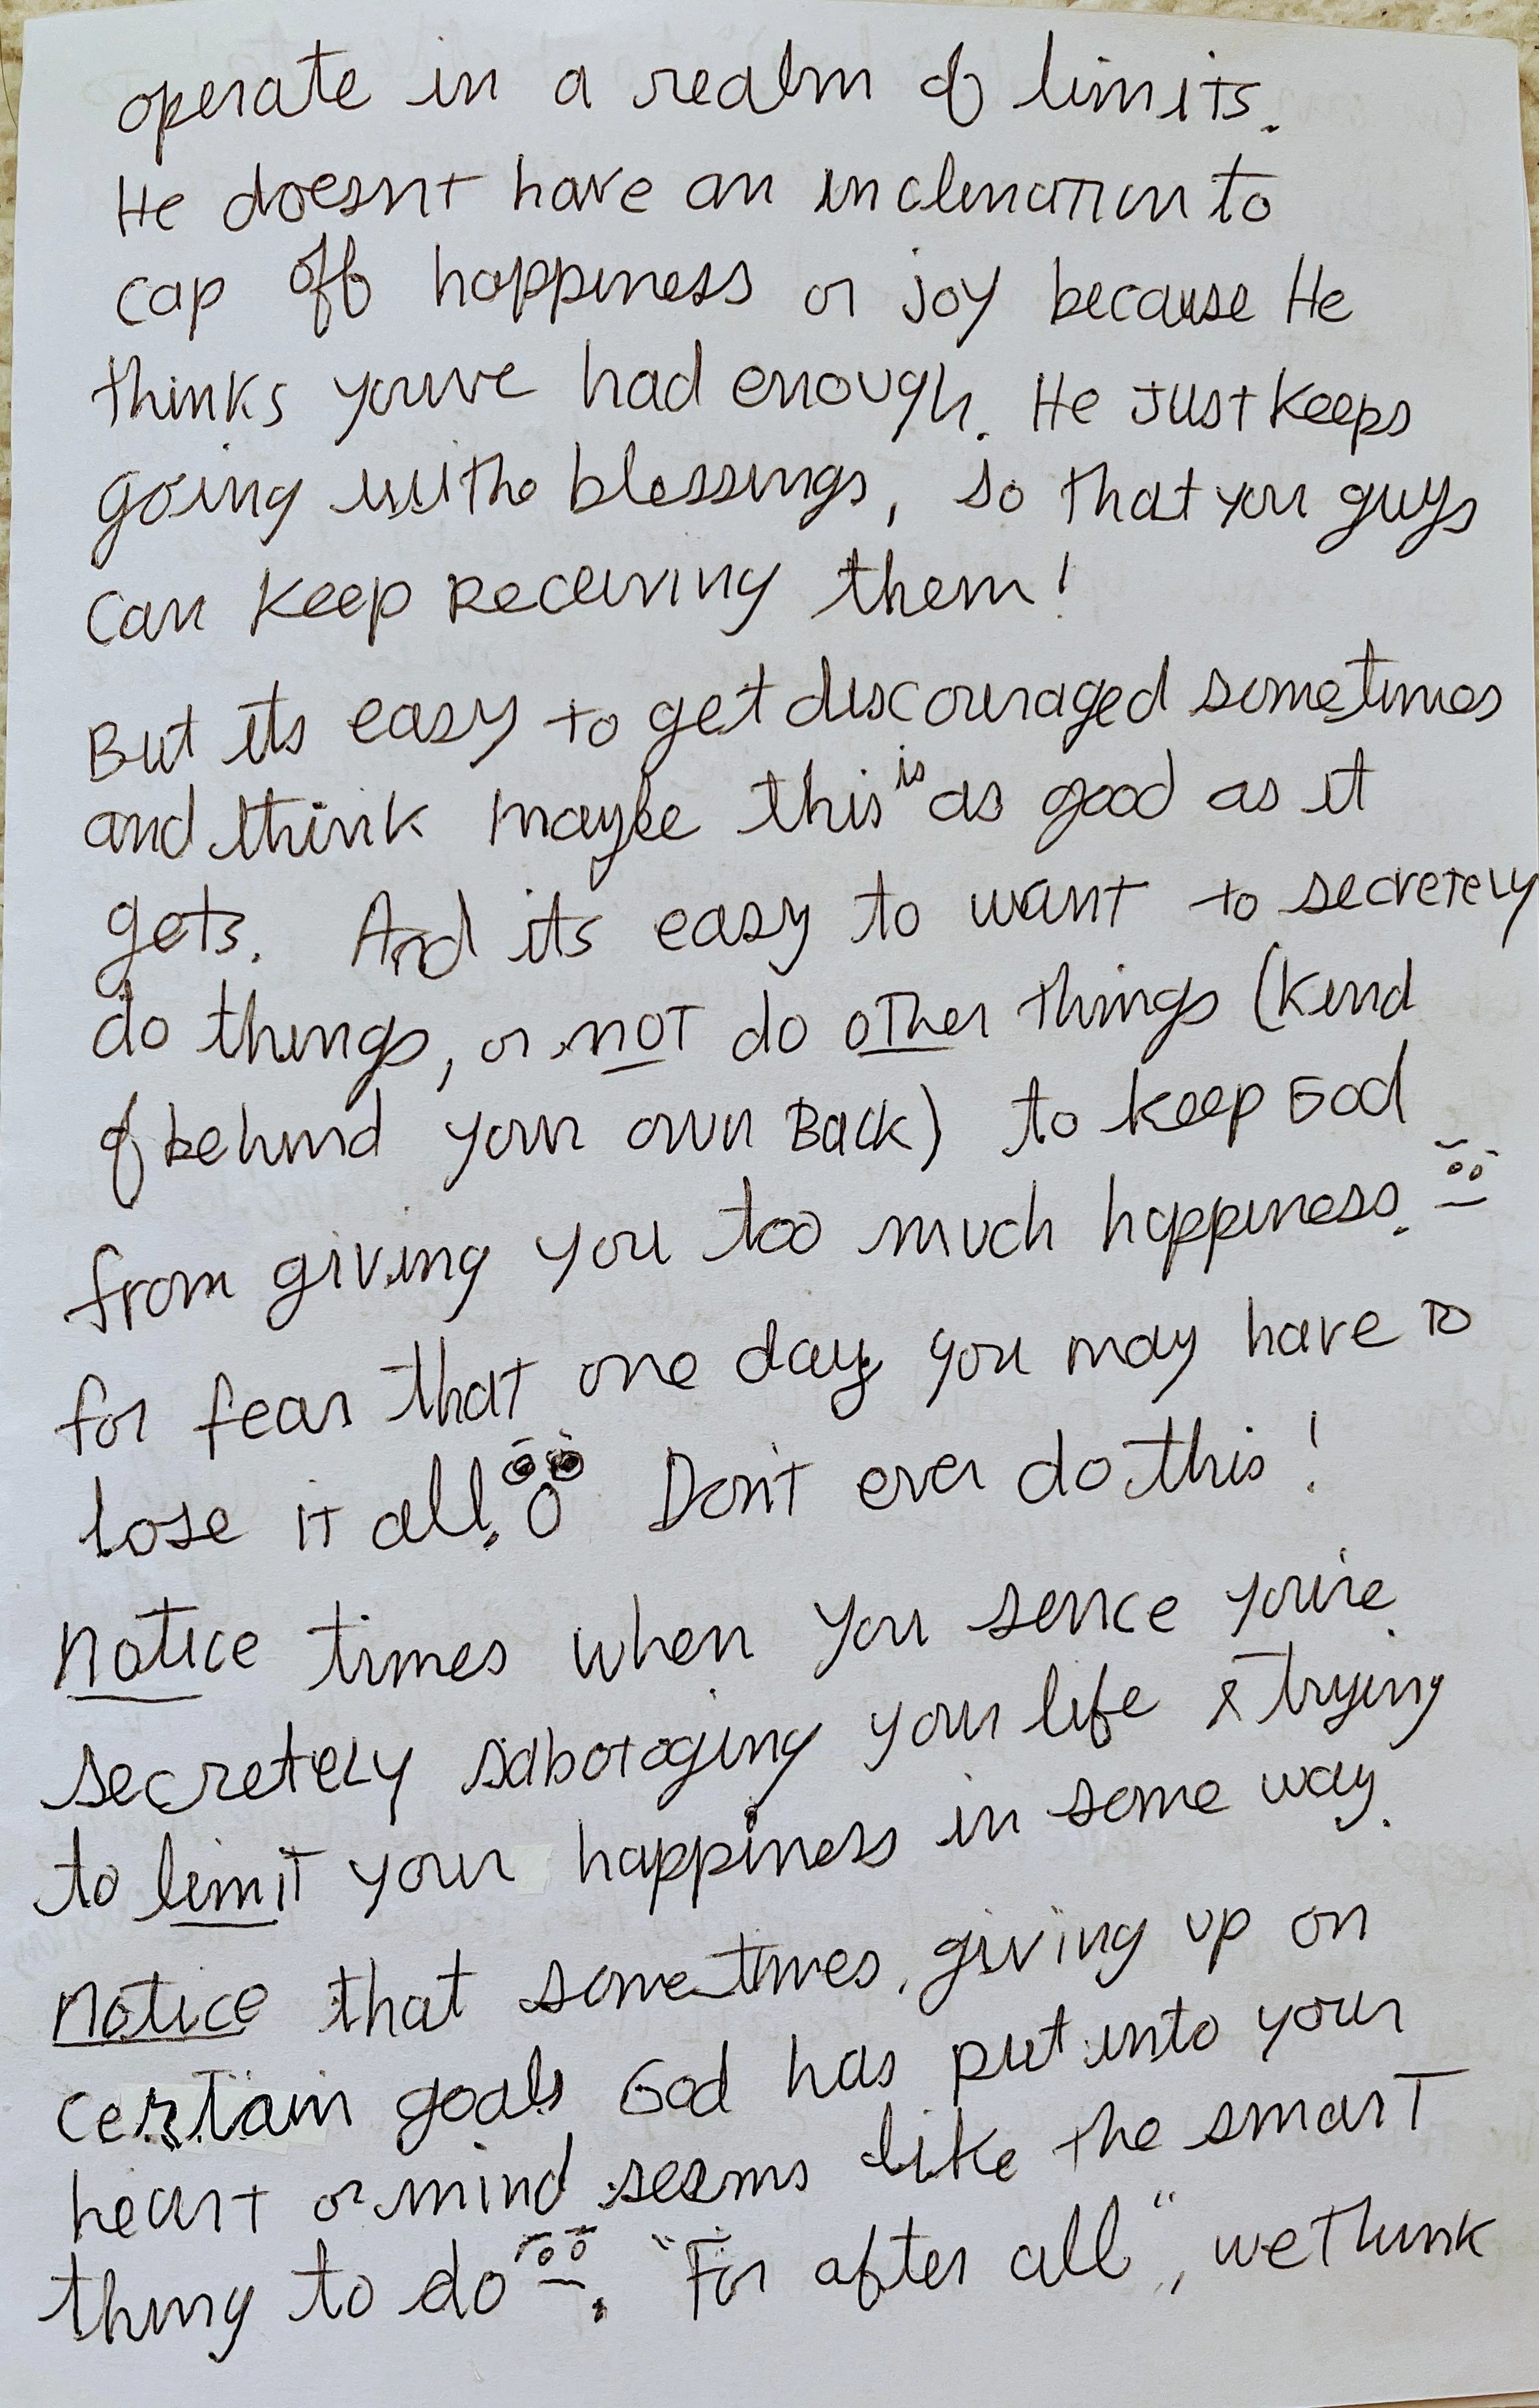 operate in a realm of limits.
He doesnt have an inclination to
cap off happiness or joy because He
thinks youve had enough. He just keeps
going withe blessings, so that you guys
can keep receiving them!
But its easy to get discouraged sometimes
and think maybe this is as good as it
gets. And its easy to want to secretely
do things, or not do other things (kind
of behind your own back) to keep God
from giving you too much happiness.
for fear that one day you may have to
lose it all. Don't ever do this!
Notice times when you sence you're
secretely sabotaging your life & trying
to limit your happiness in some way.
Notice that sometimes, giving up on
certain goals God has put into your
heart or mind seems like the smart
thing to do. "For after all", we think